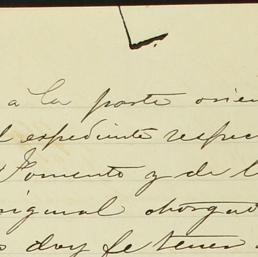 a la parte orien
l espediente respec
Fomento y de l
riginal otorga
s doy fe tener